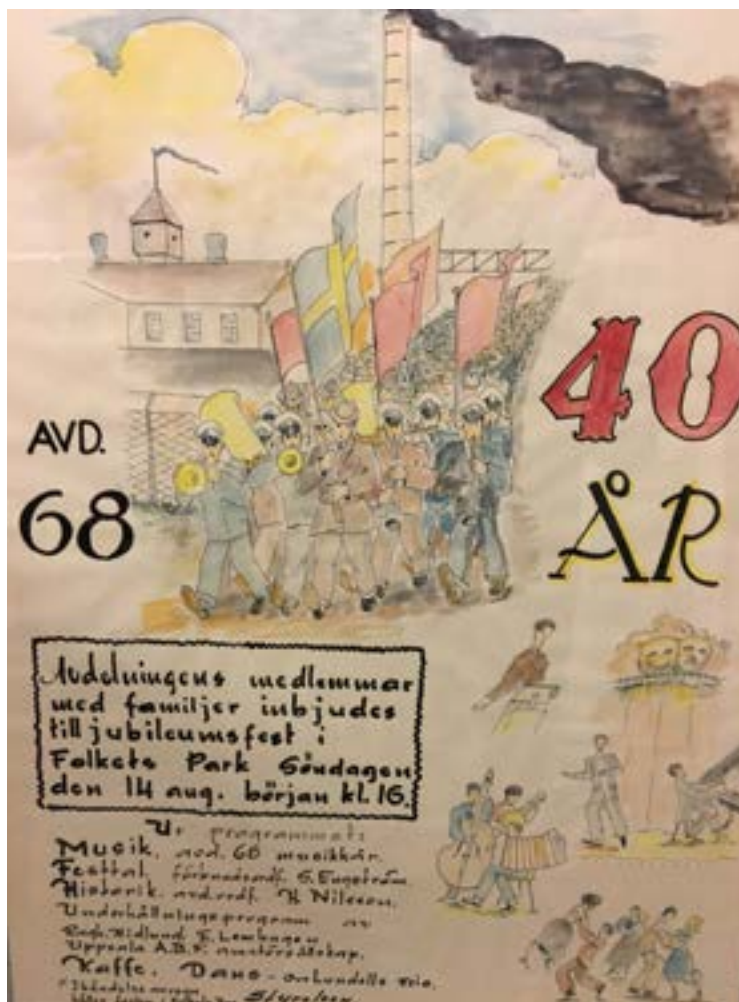 40
ÅR
AVD.
68
Avdelningens medlemmar
med familjer inbjudes
till jubileumsfest i
Folkets Park Söndagen
den 14 aug. början kl. 16.
Ur programmet:
Musik. avd. 68 musikkår.
Festtal. förbundsordf. S. Engström
Historik. avd. ordf. H Nilsson.
Underhållningsprogram av
Uppsala A.B.F. amatörsällskap.
Kaffe. Dans - trio.
Styrelsen